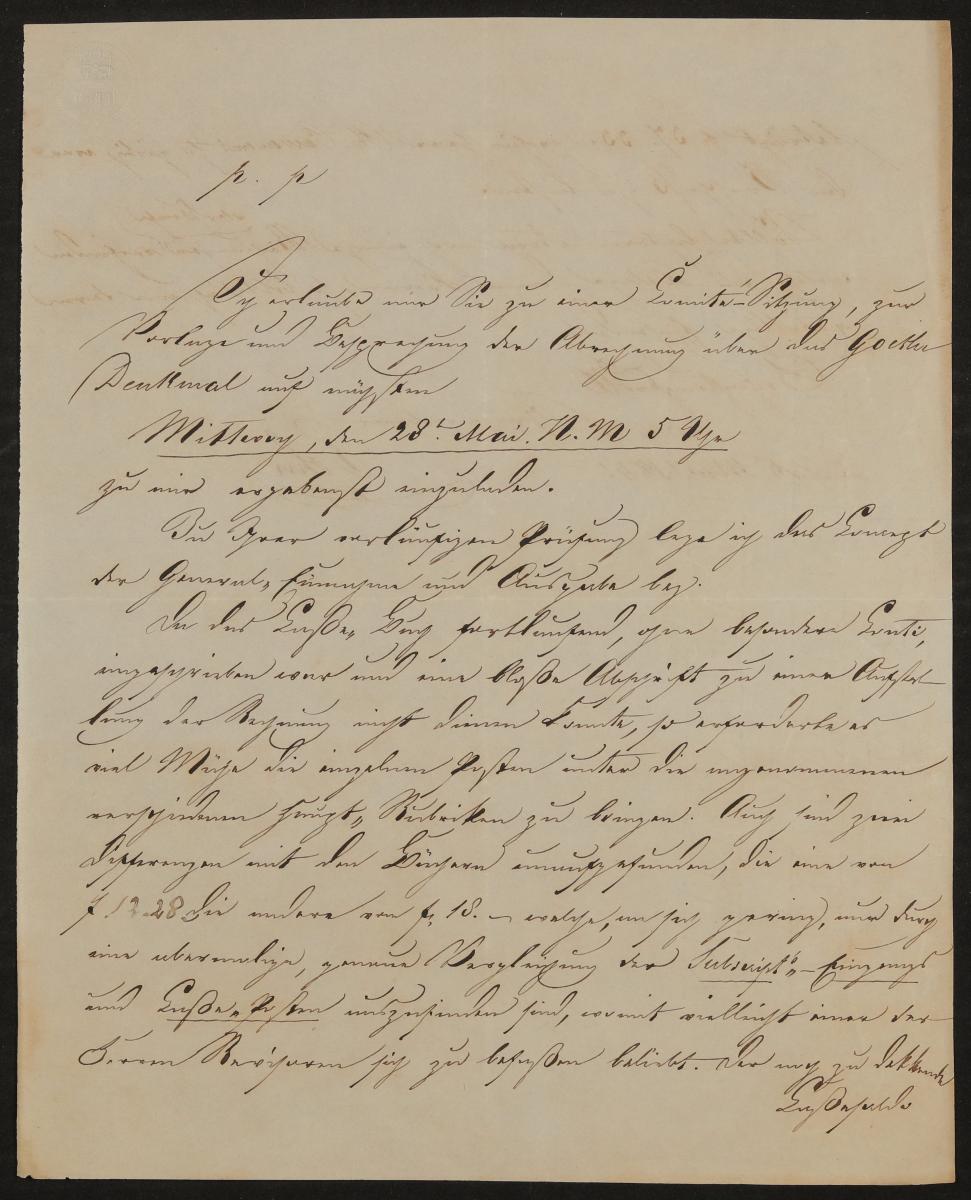 p. p
Ich erlaube mir Sie zu einer Comité-Sitzung, zur
Vorlage und Besprechung der Abrechnung über das Goethe
Denkmal auf nächsten
Mittwoch, den 28t. Mai. N. M 5 Uhr
zu mir ergebenst einzuladen.
Zu Ihrer vorläufigen Prüfung lege ich das Concept
der General-Einnahme und Ausgabe bey.
Da das Cassa-Buch fortlaufend, ohne besondere Conti,
eingeschrieben war und eine bloße Abschrift zu einer Aufstel-
lung der Rechnung nicht dienen konnte, so erforderte es
viel Mühe die einzelnen Posten unter die angenommenen
verschiedenen Haupt-Rubriken zu bringen. Auch sind zwei
Differenzen mit den Büchern unaufgefunden, die eine von
f. 12.28 die andere von f. 18. – welche, an sich gering, nur durch
eine abermalige, genaue Vergleichung der Subscript.-Eingangs
und Cassa-Posten auszufinden sind, womit vielleicht einer der
Herren Revisoren sich zu befaßen beliebt. Der noch zu dekkende
Cassasaldo